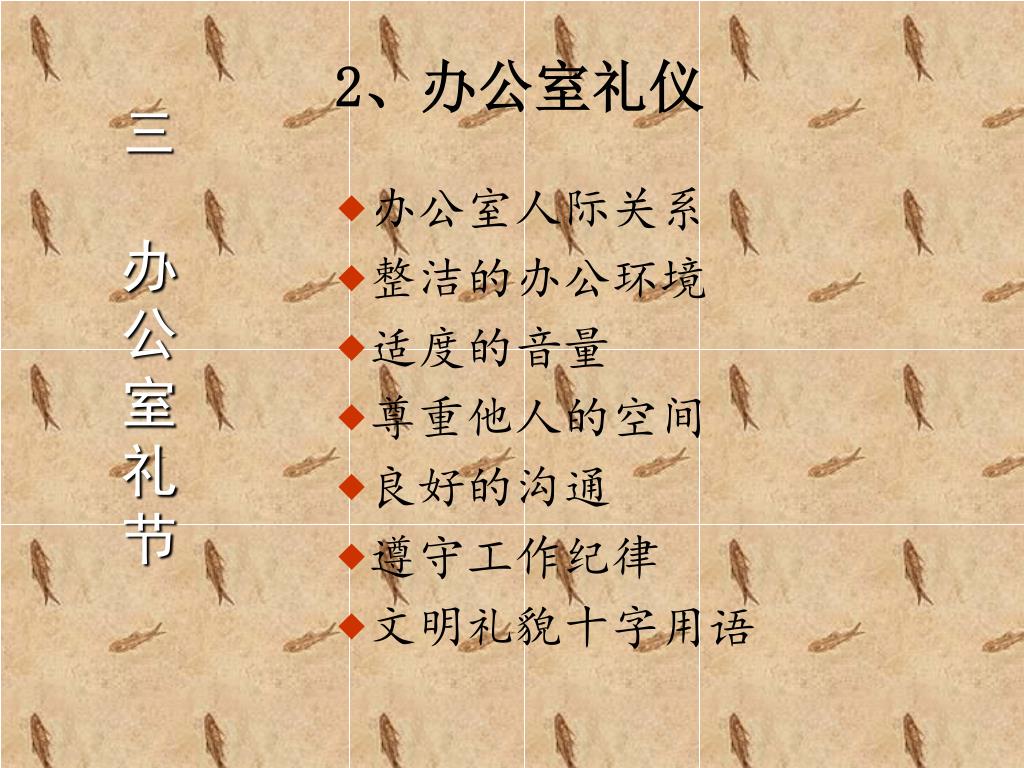 三
办公室礼节
2、办公室礼仪
办公室人际关系
整洁的办公环境
适度的音量
尊重他人的空间
良好的沟通
遵守工作纪律
文明礼貌十字用语